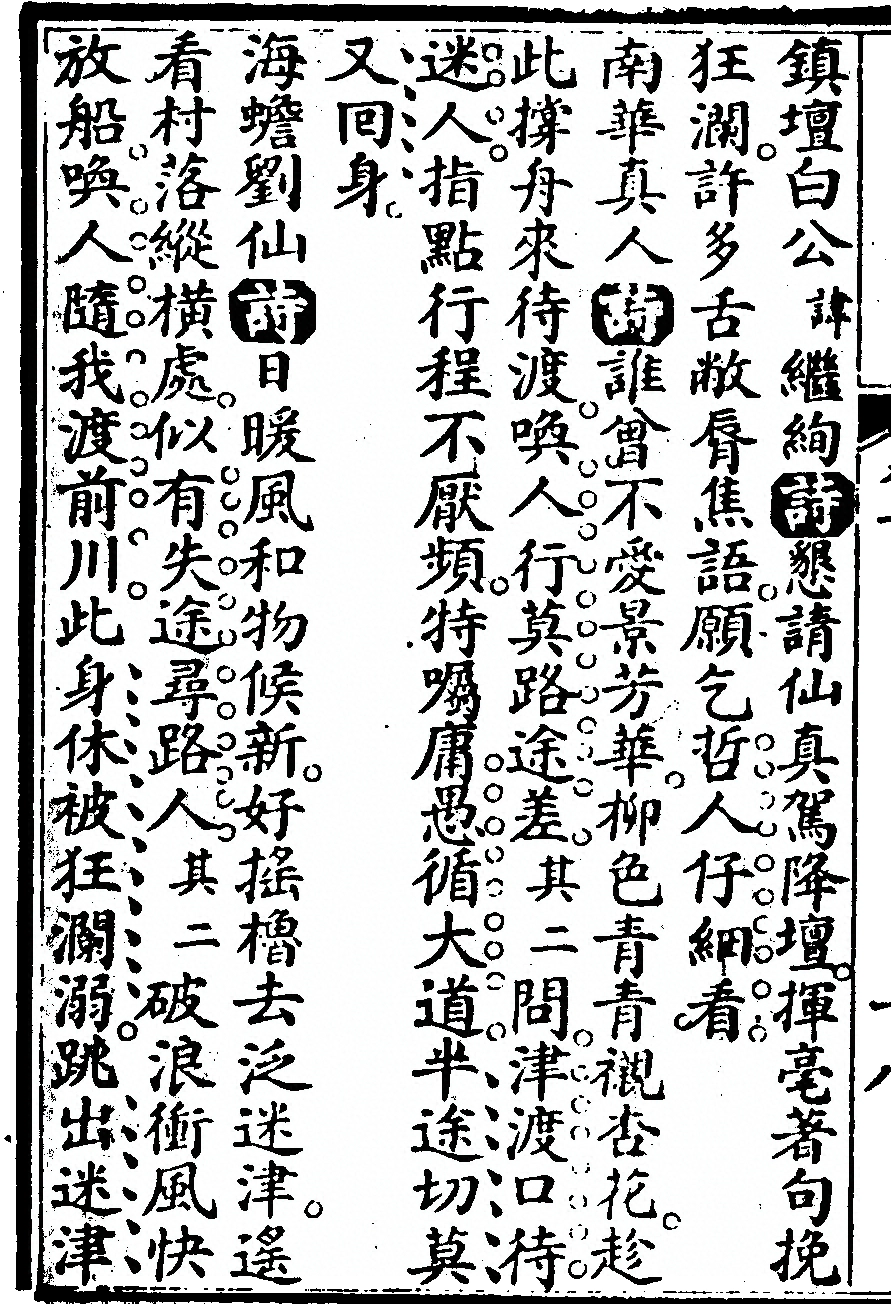 鎮壇白公諱繼絢詩懇請仙真駕降壇揮毫著句挽
狂瀾許多舌敝脣焦語願乞哲人仔細看
南華真人詩誰曾不愛景芳華柳色青青襯杏花趁
此撐舟來待渡喚人行莫路途差其二問津渡口待
迷人指點行程不厭頻特囑庸愚循大道半途切莫
又回身
海蟾劉仙詩日暖風和物候新好搖櫓去泛迷津遙
看村落縱橫處似有失途尋路人其二破浪衝風快
放船喚人隨我渡前川此身休被狂瀾溺跳出迷津